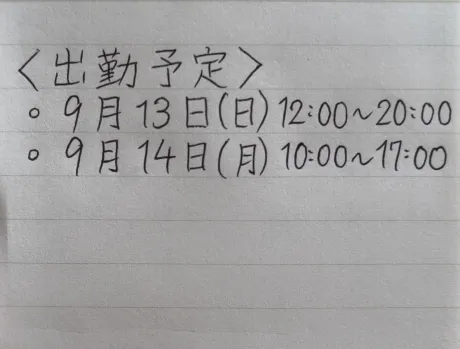 〈出勤予定〉
○ 9月13日(日) 12:00〜20:00
○ 9月14日(月) 10:00〜17:00